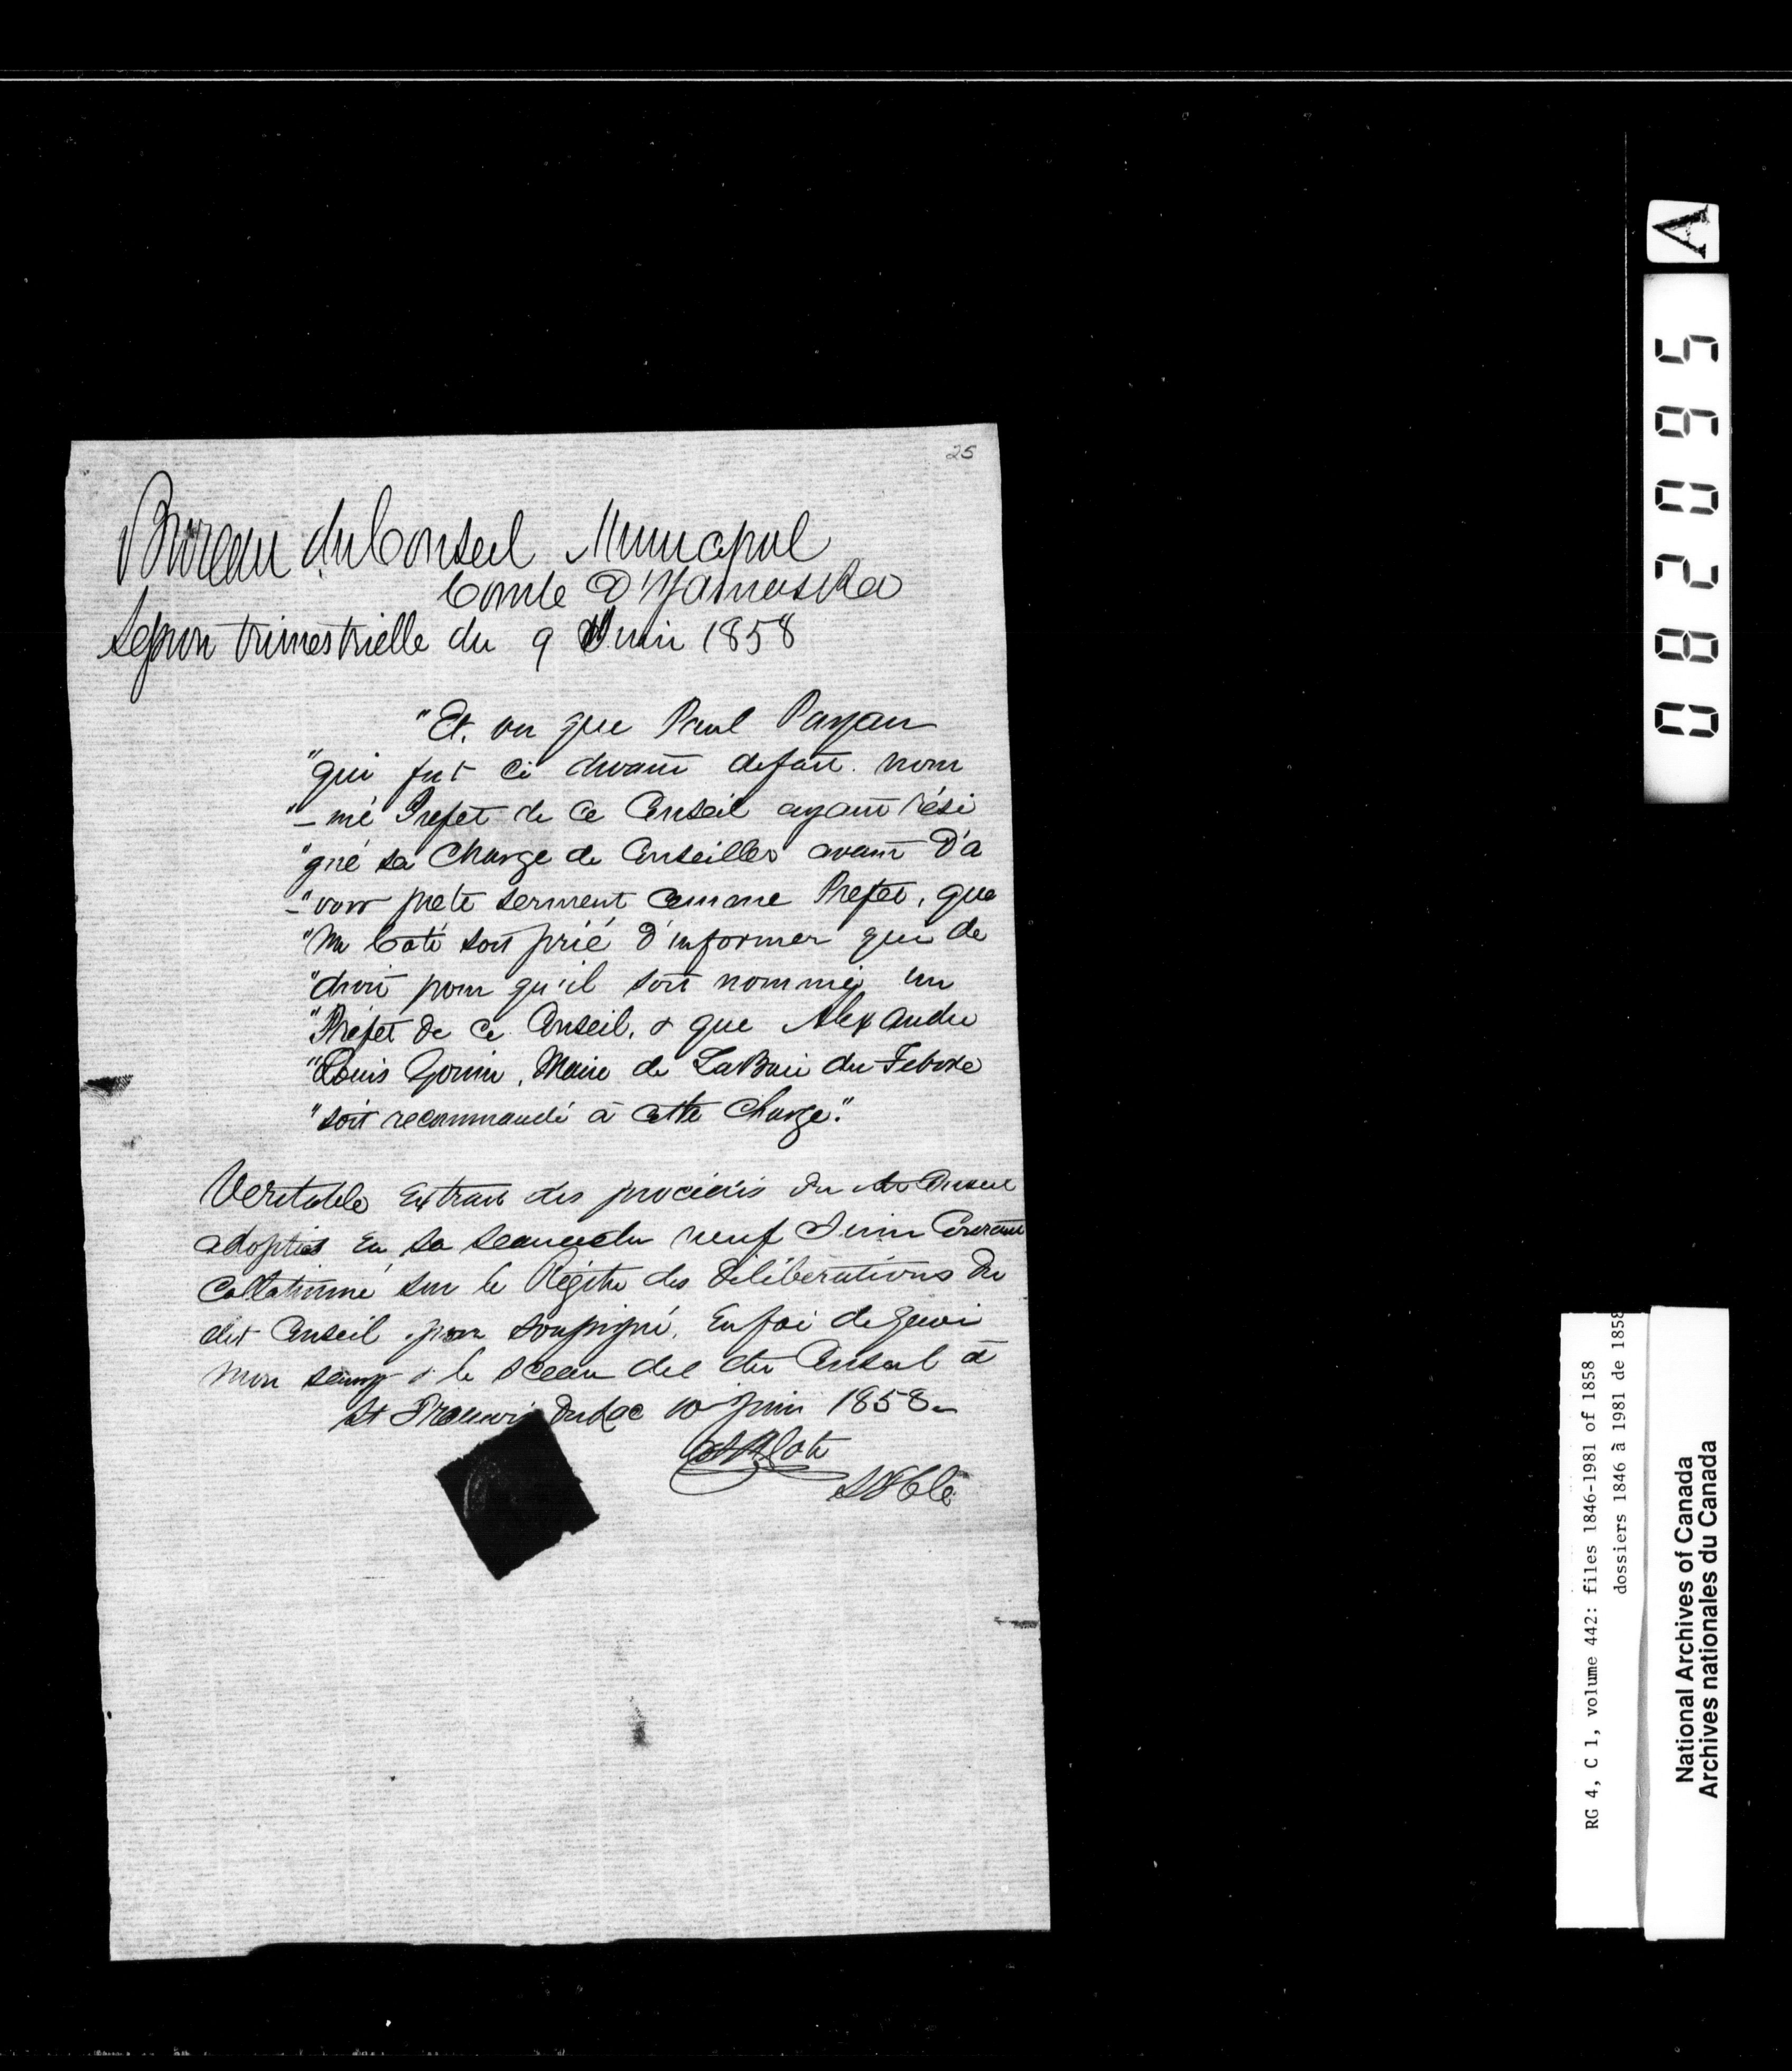 25
Bureau du Conseil Municipal
Comté D'Yamaska
Session trimestrielle du 9 Juin 1858
"Et. vu que Paul Payan
"qui fut ci devant defait. nom
"– mé Prefet de Ce Conseil ayant rési
"gné sa Charge de Conseiller avant D'a
–"voir preté serment comme Prefet, que
"Mr Coté soit prié d'informer qui de
"droit pour qu'il soit nommé, un
"Préfet de Ce Conseil, & que Alexandre
"Louis Gouin, Maire de LaBaie du Febvre
"soit recommandé à cette Charge."
Veritable Extrait des procédés du dit Conseil
adoptés en sa seance du neuf Juin Courant
Collationné sur le Régitre des Délibérations du
dit Conseil par soussigné. En foi de quoi
mon seing & le sceau del dit Conseil à
St François du Lac 10 juin 1858
Coté
A
082095
RG 4, C 1, volume 442: files 1846-1981 of 1858
dossiers 1846 à 1981 de 1858
National Archives of Canada
Archives nationales du Canada